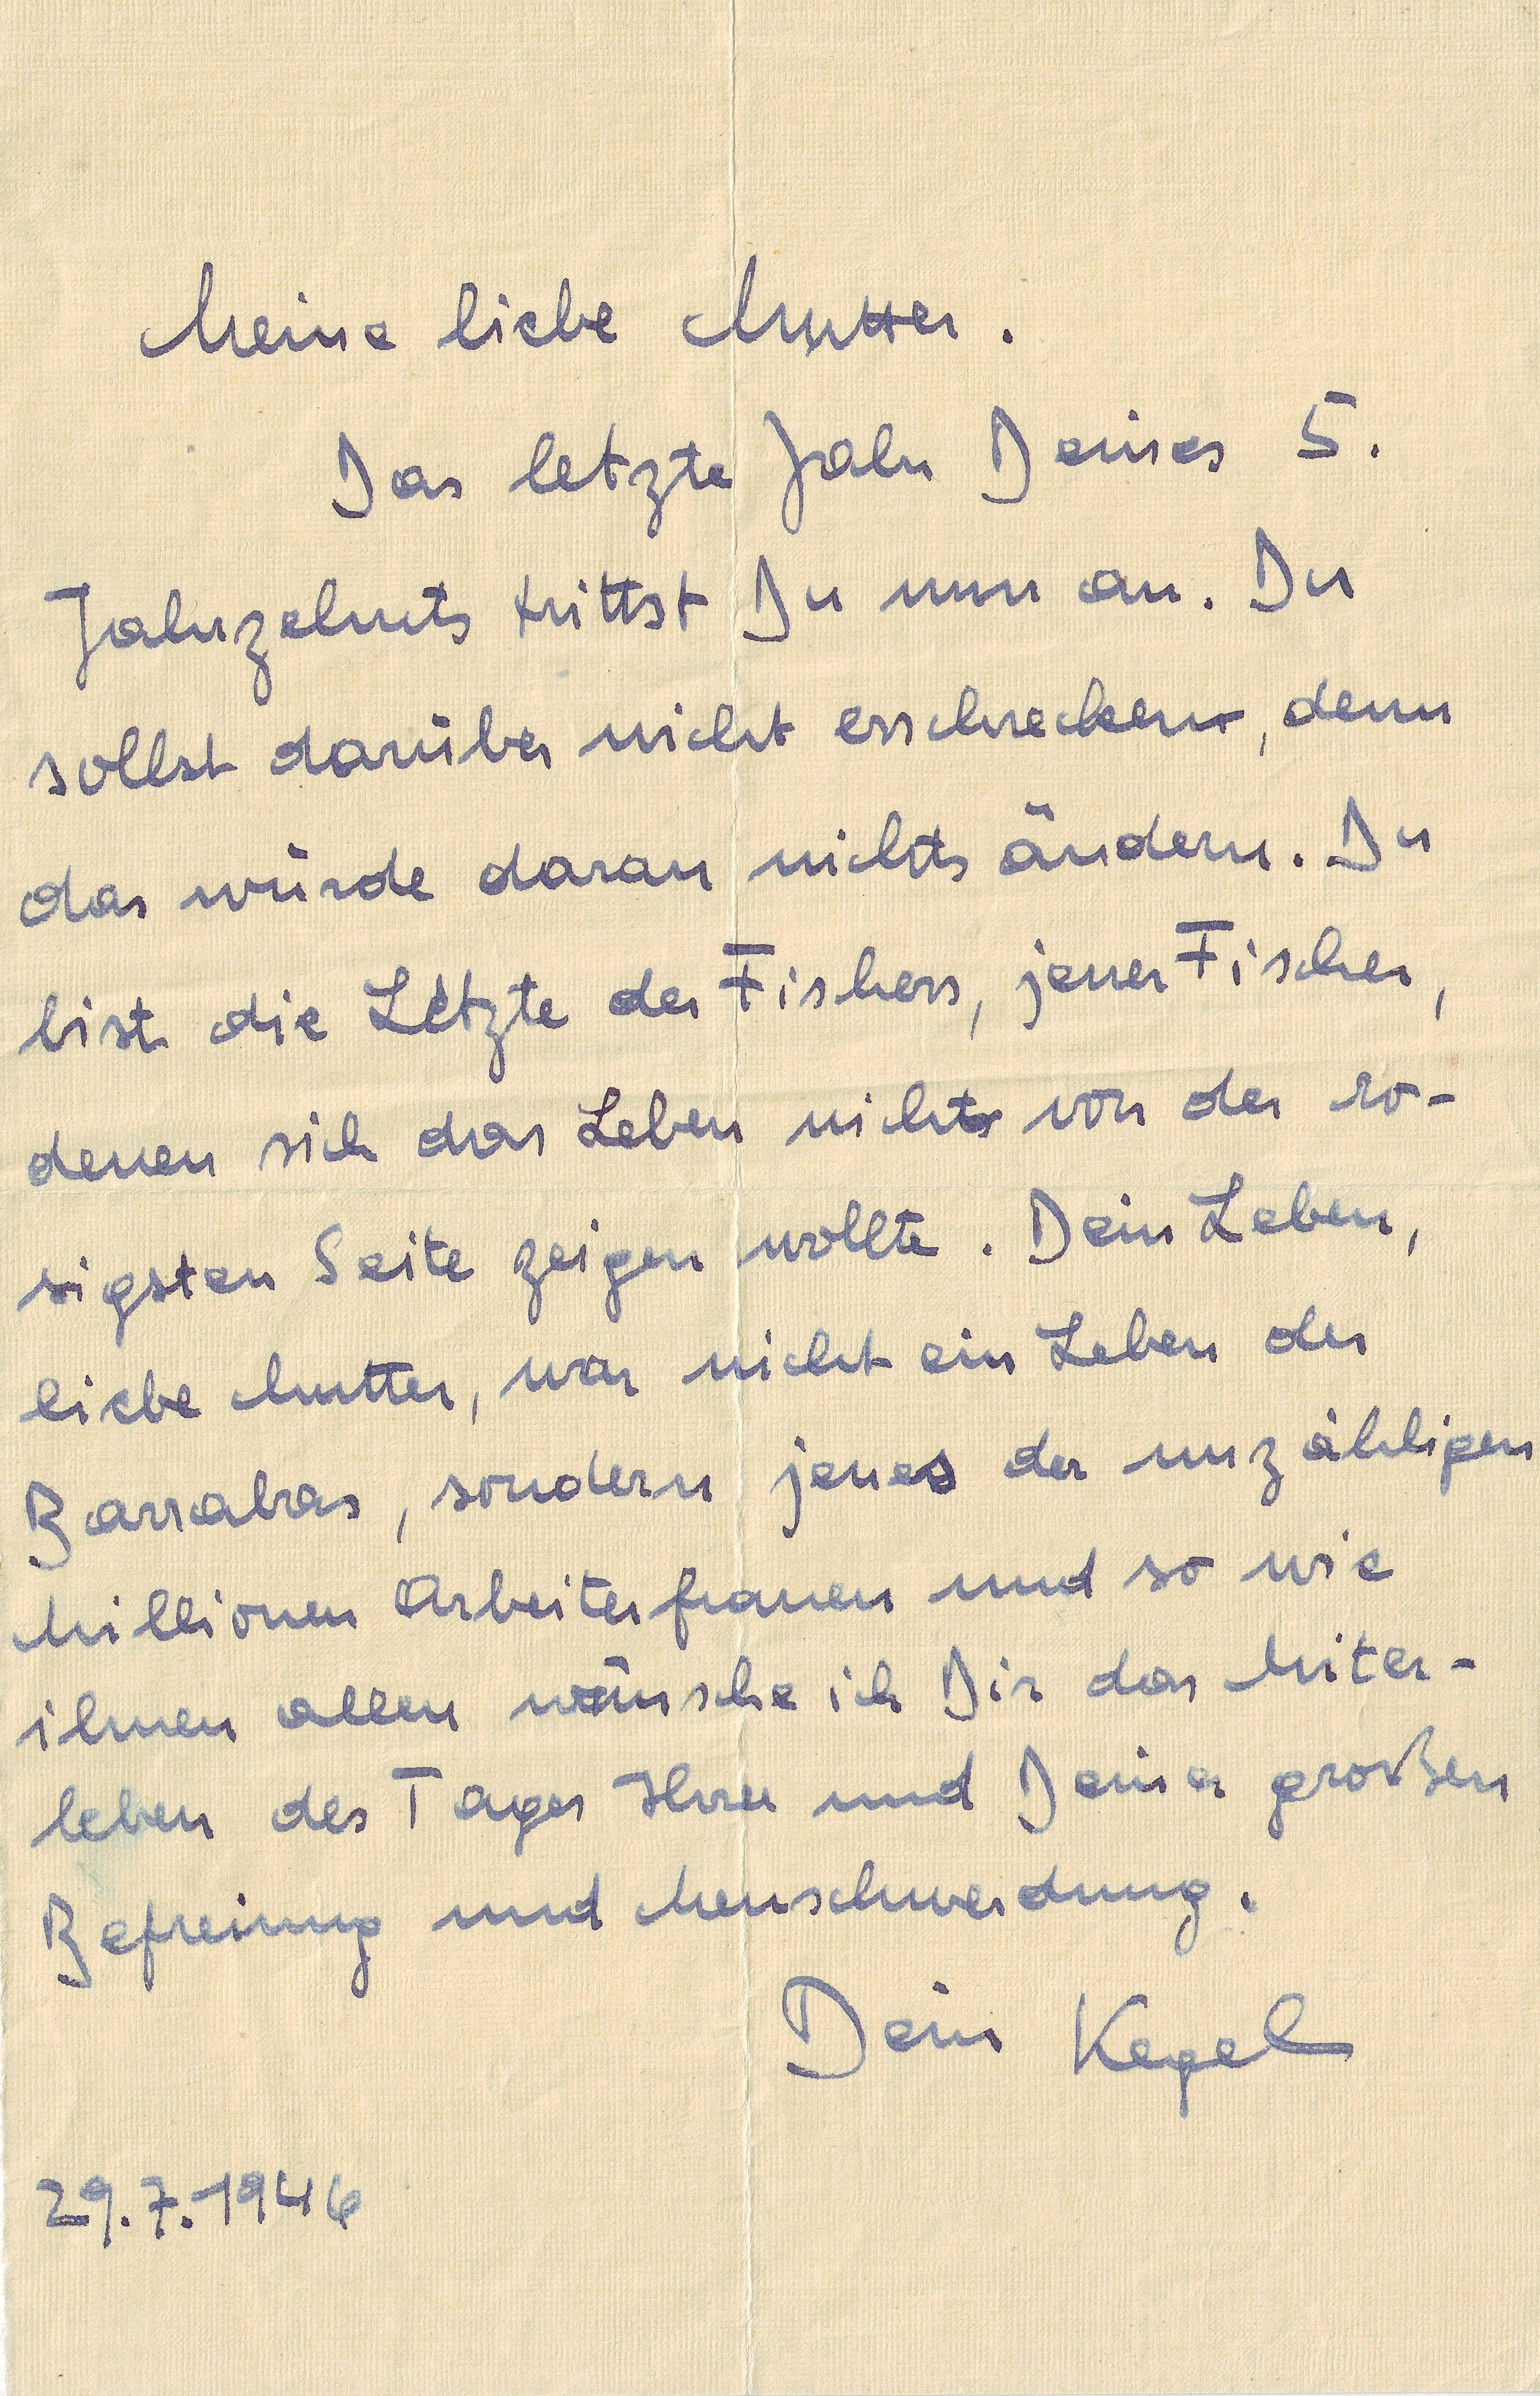 Meine liebe Mutter.
Das letzte Jahr Deines 5.
Jahrzehnts trittst Du nun an. Du
sollst darüber nicht erschrecken, denn
das würde daran nichts ändern. Du
bist die Letzte der Fishers, jener Fischer,
denen sich das Leben nicht von der ro-
sigsten Seite zeigen wollte. Dein Leben,
liebe Mutter, war nicht ein Leben der
Barrabas, sondern jenes der unzähligen
Millionen Arbeiterfrauen und so wie
ihnen allen wünsche ich Dir das Miter-
leben des Tages Ihrer und Deiner großen
Befreiung und Menschwerdung.
Dein Kegel
29.7.1946